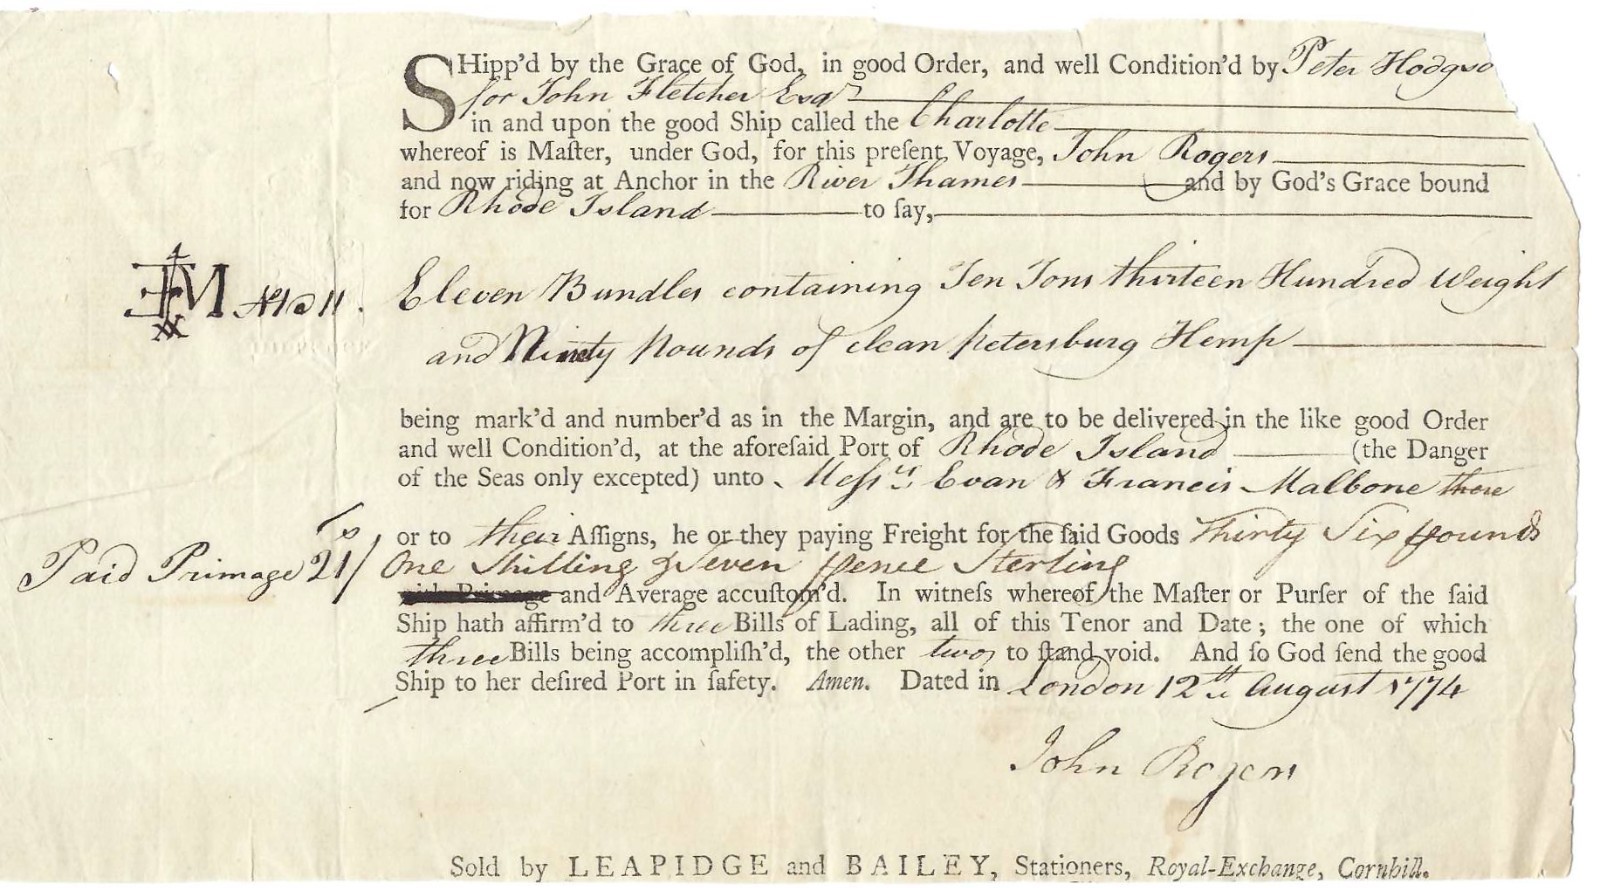 SHipp'd by the Grace of God, in good Order, and well Condition'd by Peter Hodgso
for John Fletcher Esqr
in and upon the good Ship called the Charlotte
whereof is Maſter, under God, for this preſent Voyage, John Rogers
and now riding at Anchor in the River Thames and by God's Grace bound
for Rhode Island to ſay,
EFM No 1 @ 11. Eleven Bundles containing Ten Tons thirteen Hundred Weight
and Ninety pounds of clean petersburg Hemp
being mark'd and number'd as in the Margin, and are to be delivered in the like good Order
and well Condition'd, at the aforeſaid Port of Rhode Island (the Danger
of the Seas only excepted) unto Meſsrs. Evan & Francis Malbone there
or to their Aſſigns, he or they paying Freight for the ſaid Goods Thirty Six pounds
Paid Primage 21/ One Shilling & Seven pence Sterling
with Primage and Average accuſtom'd. In witneſs whereof the Maſter or Purſer of the ſaid
Ship hath affirm'd to three Bills of Lading, all of this Tenor and Date; the one of which
three Bills being accompliſh'd, the other two to ſtand void. And ſo God ſend the good
Ship to her deſired Port in ſafety. Amen. Dated in London 12th August 1774
John Rogers
Sold by LEAPIDGE and BAILEY, Stationers, Royal-Exchange, Cornhill.